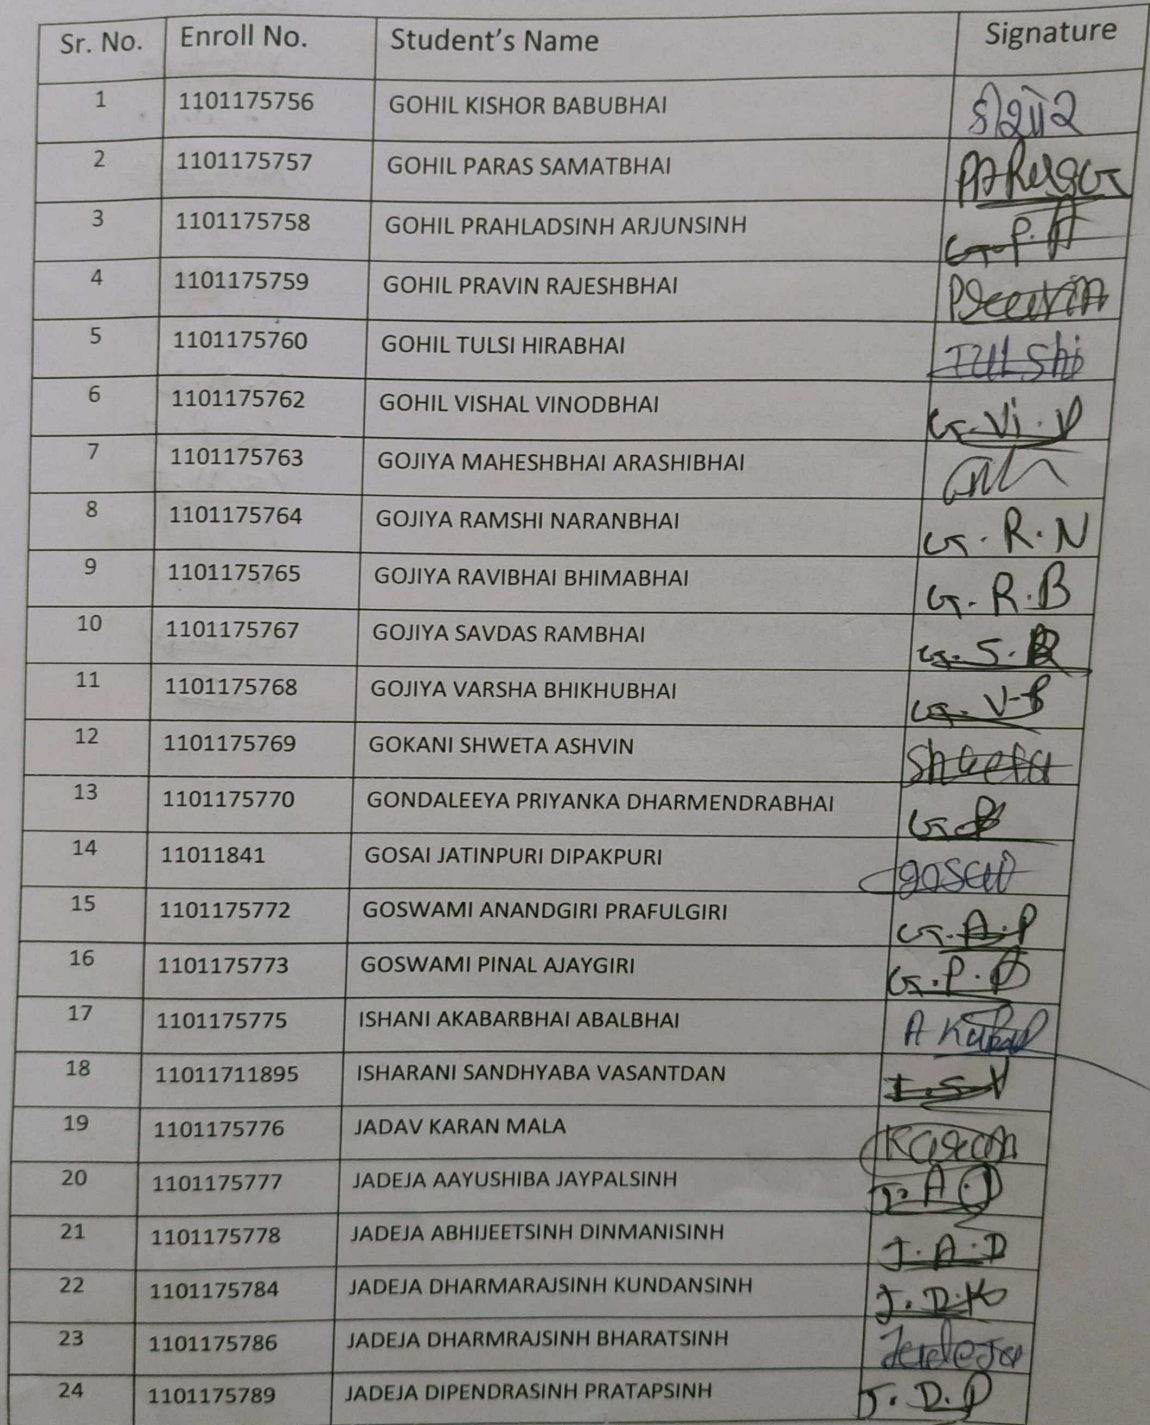 Sr. No. Enroll No. Student's Name Signature
1 1101175756 GOHIL KISHOR BABUBHAI કીશોર
2 1101175757 GOHIL PARAS SAMATBHAI
3 1101175758 GOHIL PRAHLADSINH ARJUNSINH G.P.A
4 1101175759 GOHIL PRAVIN RAJESHBHAI
5 1101175760 GOHIL TULSI HIRABHAI TULShi
6 1101175762 GOHIL VISHAL VINODBHAI G.Vi.V
7 1101175763 GOJIYA MAHESHBHAI ARASHIBHAI
8 1101175764 GOJIYA RAMSHI NARANBHAI G.R.N
9 1101175765 GOJIYA RAVIBHAI BHIMABHAI G.R.B
10 1101175767 GOJIYA SAVDAS RAMBHAI G.S.R
11 1101175768 GOJIYA VARSHA BHIKHUBHAI G.V.B
12 1101175769 GOKANI SHWETA ASHVIN
13 1101175770 GONDALEEYA PRIYANKA DHARMENDRABHAI
14 11011841 GOSAI JATINPURI DIPAKPURI gosai
15 1101175772 GOSWAMI ANANDGIRI PRAFULGIRI G.A.P
16 1101175773 GOSWAMI PINAL AJAYGIRI G.P.A
17 1101175775 ISHANI AKABARBHAI ABALBHAI
18 11011711895 ISHARANI SANDHYABA VASANTDAN I.S.V
19 1101175776 JADAV KARAN MALA Karan
20 1101175777 JADEJA AAYUSHIBA JAYPALSINH J.A.J
21 1101175778 JADEJA ABHIJEETSINH DINMANISINH J.A.D
22 1101175784 JADEJA DHARMARAJSINH KUNDANSINH J.D.K
23 1101175786 JADEJA DHARMRAJSINH BHARATSINH Jadeja
24 1101175789 JADEJA DIPENDRASINH PRATAPSINH J.D.P